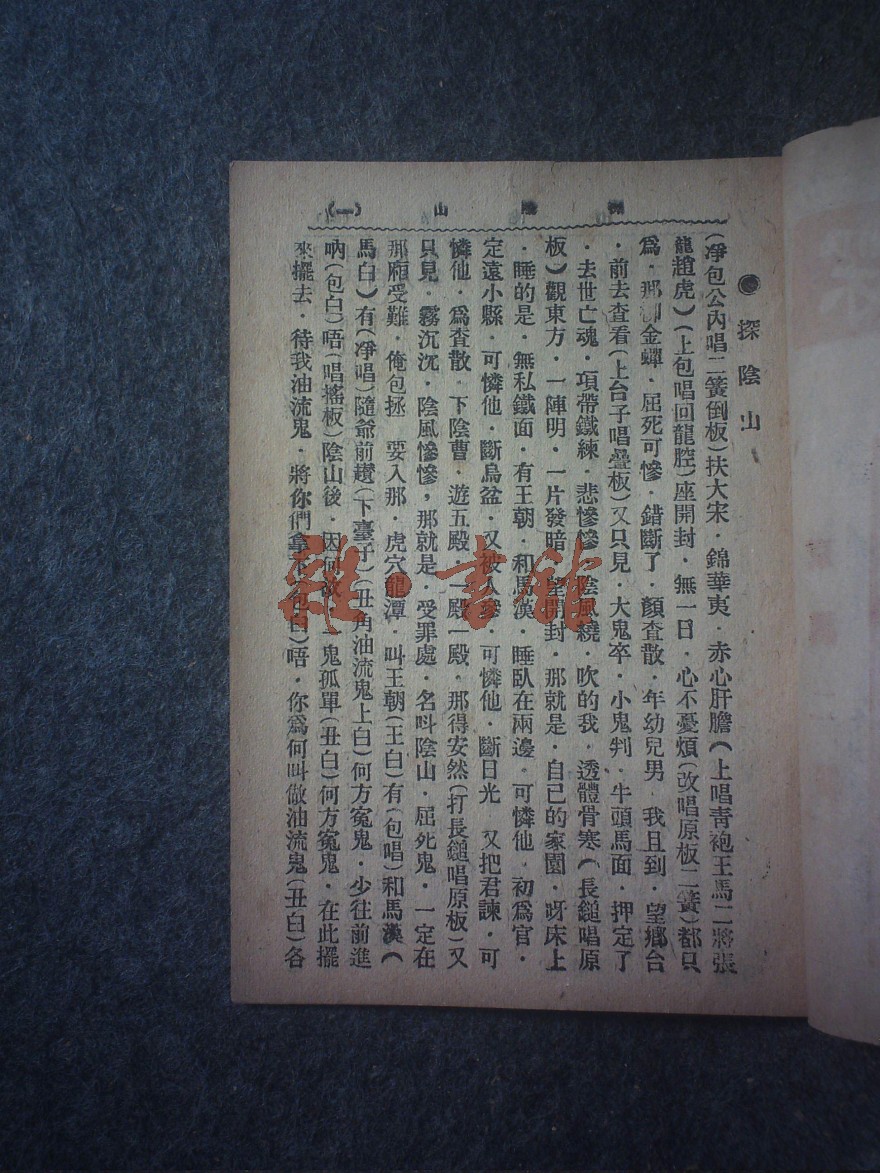 探陰山（一）
●探陰山
(淨包公內唱二簧倒板)扶大宋·錦華夷·赤心肝膽(上唱青袍王馬二將張
龍趙虎)(上包唱回龍腔)座開封·無一日·心不憂煩(改唱原板二簧)都只
爲·那柳金蟬·屈死可慘·錯斷了·顏查散·年幼兒男·我且到·望鄉台
·前去查看(上台子唱疊板)又只見·大鬼卒·小鬼判·牛頭馬面·押定了
·去世亡魂·項帶鐵練·悲慘慘·陰風繞·吹的我·透體骨寒(長鎚唱原
板)觀東方·一陣明·一片發暗·望開封·那就是·自己的家園·呀床上
·睡的是·無私鐵面·有王朝·和馬漢·睡臥在兩邊·可憐他·初爲官·
定遠小縣·可憐他·斷烏盆·又被人參·可憐他·斷日光 又把君諫·可
憐他·爲查散·下陰曹·遊五殿·一殿一殿·那得安然(打長鎚唱原板)又
只見·霧沉沉·陰風慘慘，那就是·受罪處·名叫陰山·屈死鬼·一定在
那廂受難·俺包拯 要入那·虎穴龍潭·叫王朝(王白)有(包唱)和馬漢(
馬白)有(凈唱)隨爺前趲(下臺子)(丑角油流鬼上白)何方冤鬼·少往前進
吶(包白)唔(唱搖板)陰山後·因何故 一鬼孤單(丑白)何方冤鬼·在此擺
來擺去·待我油流鬼·將你們拿下(包白)唔·你爲何叫做油流鬼(丑白)各
雜·書館